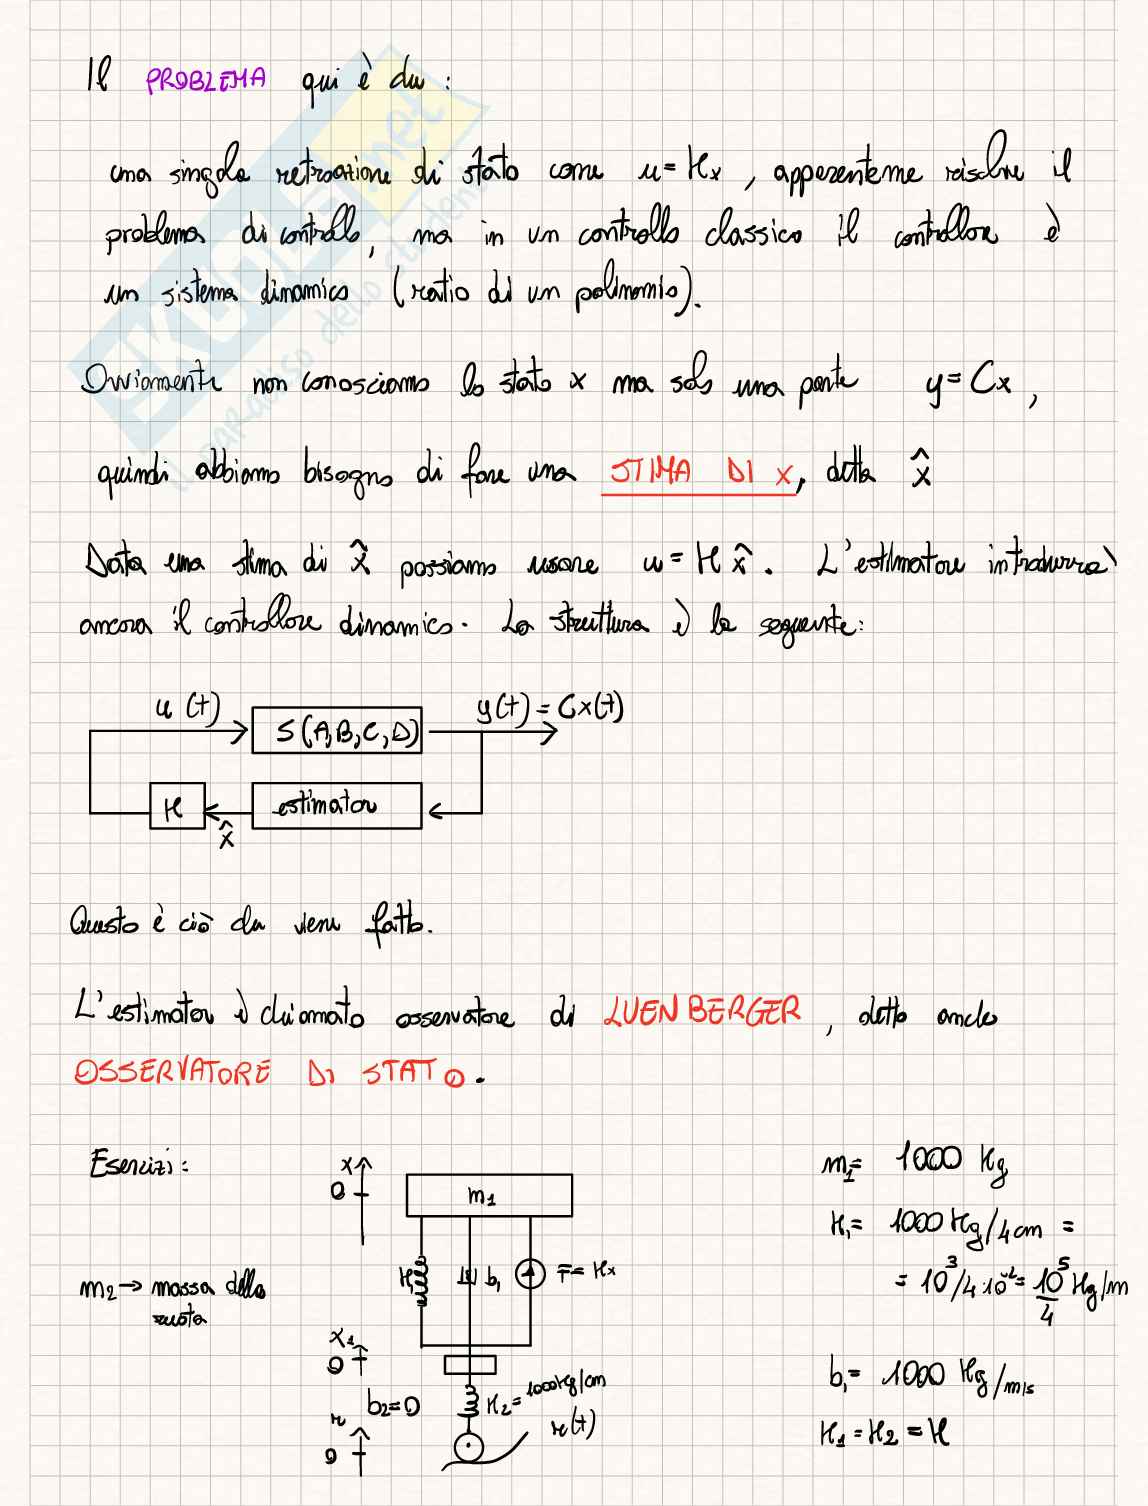 Il PROBLEMA qui è che :
una singola retroazione di stato come u = Kx , apparentemente risolve il
problema di controllo, ma in un controllo classico il controllore è
un sistema dinamico (ratio di un polinomio).
Ovviamente non conosciamo lo stato x ma solo una parte y = Cx ,
quindi abbiamo bisogno di fare una STIMA DI X, detta x̂
Data una stima di x̂ possiamo usare u = K x̂ . L'estimatore introdurrà
ancora il controllore dinamico. La struttura è la seguente:
u (t)
S(A,B,C,D)
y(t) = Cx(t)
K
x̂
estimator
Questo è ciò che viene fatto.
L'estimator è chiamato osservatore di LUENBERGER , detto anche
OSSERVATORE DI STATO .
Esercizi :
x
0
m1
m1 = 1000 Kg
K1 = 1000 Kg/4cm =
= 10³/4·10⁻² = 10⁵/4 Kg/m
m2 → massa della
ruota
K1
b1
F = Kx
x1
0
b2=0
K2 = 1000Kg/cm
b1 = 1000 Kg/m/s
r
0
r(t)
K1 = K2 = K
SKUOLA.net
il paradiso dello studente